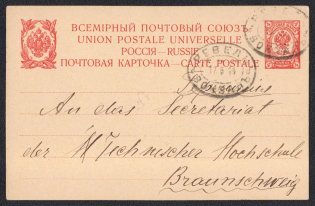 ВСЕМІРНЫЙ ПОЧТОВЫЙ СОЮЗЪ
UNION POSTALE UNIVERSELLE
РОССІЯ–RUSSIE
ПОЧТОВАЯ КАРТОЧКА–CARTE POSTALE
РЕВЕЛ
An das Secretariat
der Technischer Hochschule
Braunschweig